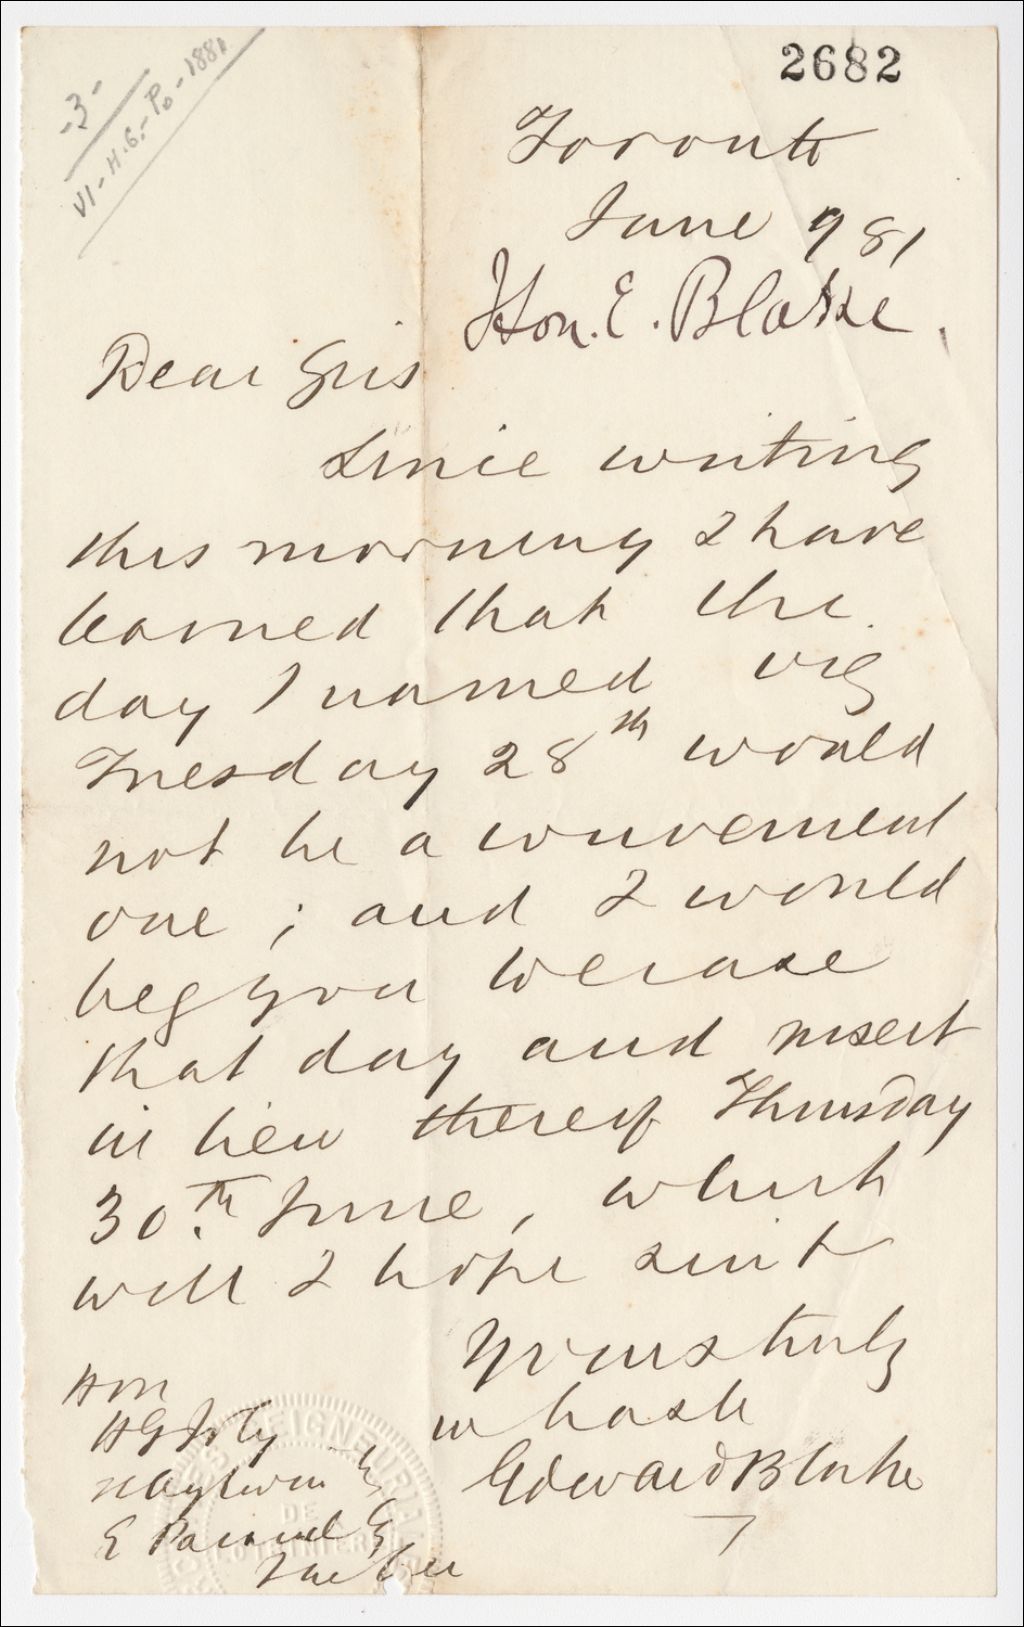 2682
-3-
VI-H.G.-Po-1881
Toronto
June 9 81
Hon. E. Blake.
Dear Sirs
Since writing
this morning I have
learned that the
day I named viz
Tuesday 28th would
not be a convenient
one; and I would
beg you to erase
that day and insert
in lieu thereof Thursday
30th June, which
will I hope suit
Yours truly
in haste
Edward Blake
Hon
HG Joly
E Pacaud
Quebec
SEIGNEURIE
DE
LOTBINIERE